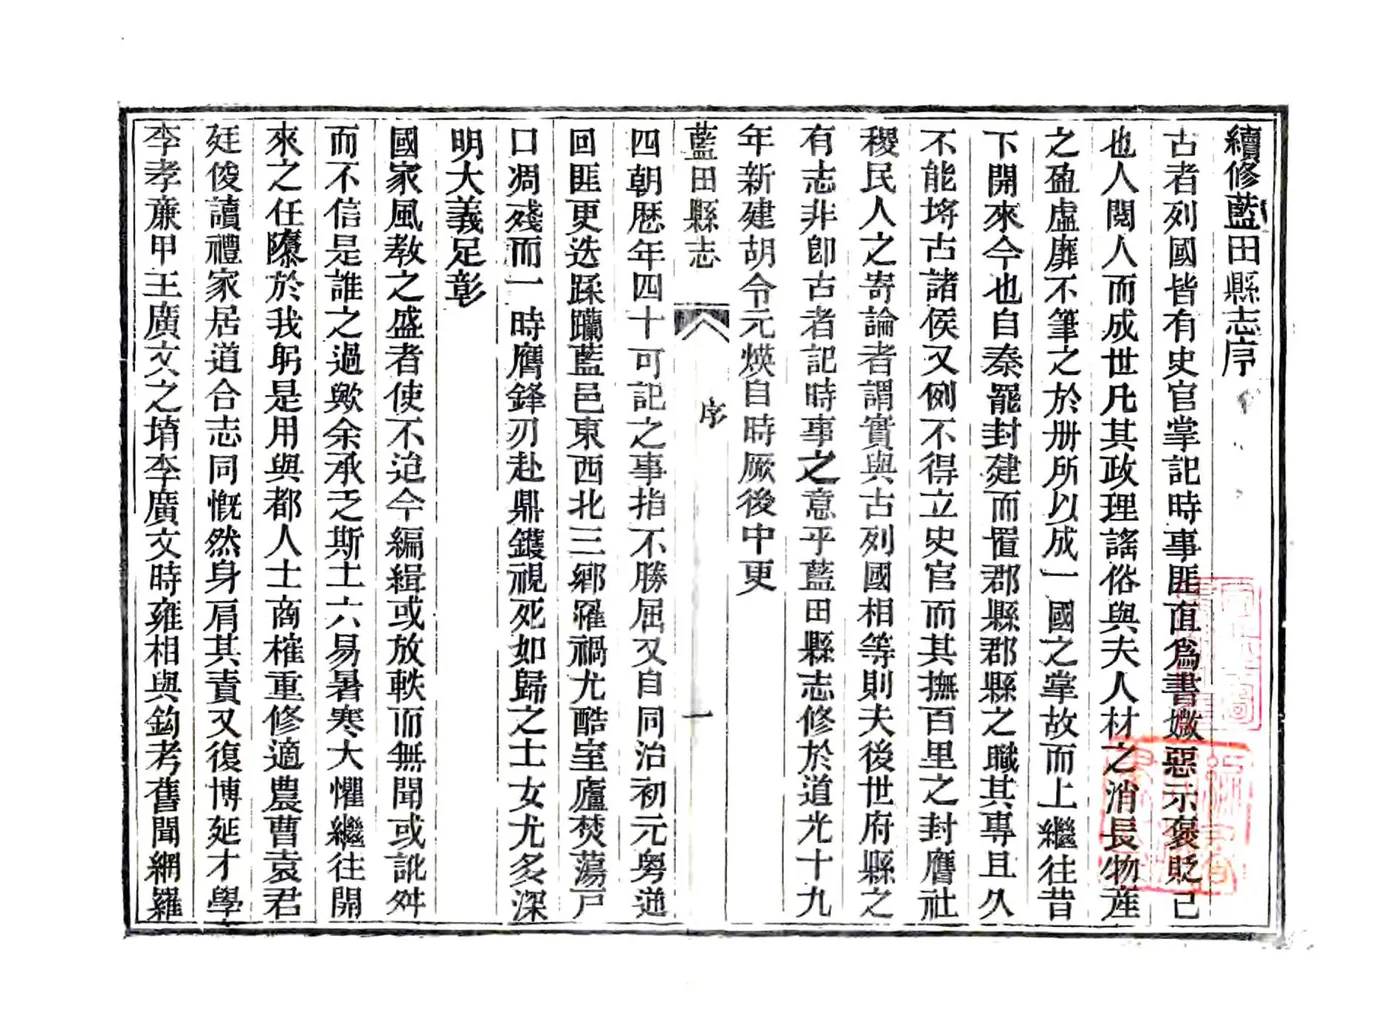 續修藍田縣志序
古者列國皆有史官掌記時事匪直爲書媺惡示褒貶已
也人閱人而成世凡其政理謠俗與夫人材之消長物產
之盈虛靡不筆之於册所以成一國之掌故而上繼往昔
下開來今也自秦罷封建而置郡縣郡縣之職其專且久
不能埒古諸侯又例不得立史官而其撫百里之封膺社
稷民人之寄論者謂實與古列國相等則夫後世府縣之
有志非卽古者記時事之意乎藍田縣志修於道光十九
年新建胡令元煐自時厥後中更
藍田縣志
序
一
四朝歷年四十可記之事指不勝屈又自同治初元粵逆
回匪更迭蹂躪藍邑東西北三鄉罹禍尤酷室廬焚蕩戸
口凋殘而一時膺鋒刃赴鼎鑊視死如歸之士女尤多深
明大義足彰
國家風教之盛者使不迨今編緝或放軼而無聞或訛舛
而不信是誰之過歟余承乏斯土六易暑寒大懼繼往開
來之任隳於我躬是用與都人士商榷重修適農曹袁君
廷俊讀禮家居道合志同慨然身肩其責又復博延才學
李孝亷甲王廣文之堉李廣文時雍相與鈎考舊聞網羅